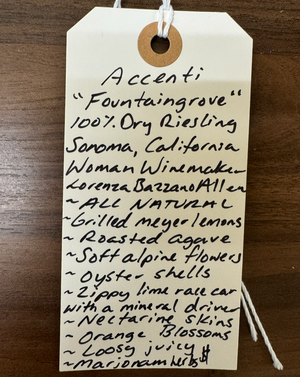 Accenti
"Fountaingrove"
100% Dry Riesling
Sonoma, California
Woman Winemaker
Lorenza Bazzano Allen
~ ALL NATURAL
~Grilled meyer lemons
~ Roasted agave
~Soft alpine flowers
~Oyster shells
~Zippy lime race car
with a mineral driver
~Nectarine skins
~Orange Blossoms
~Loosy juicy
~Marjoram herbs $